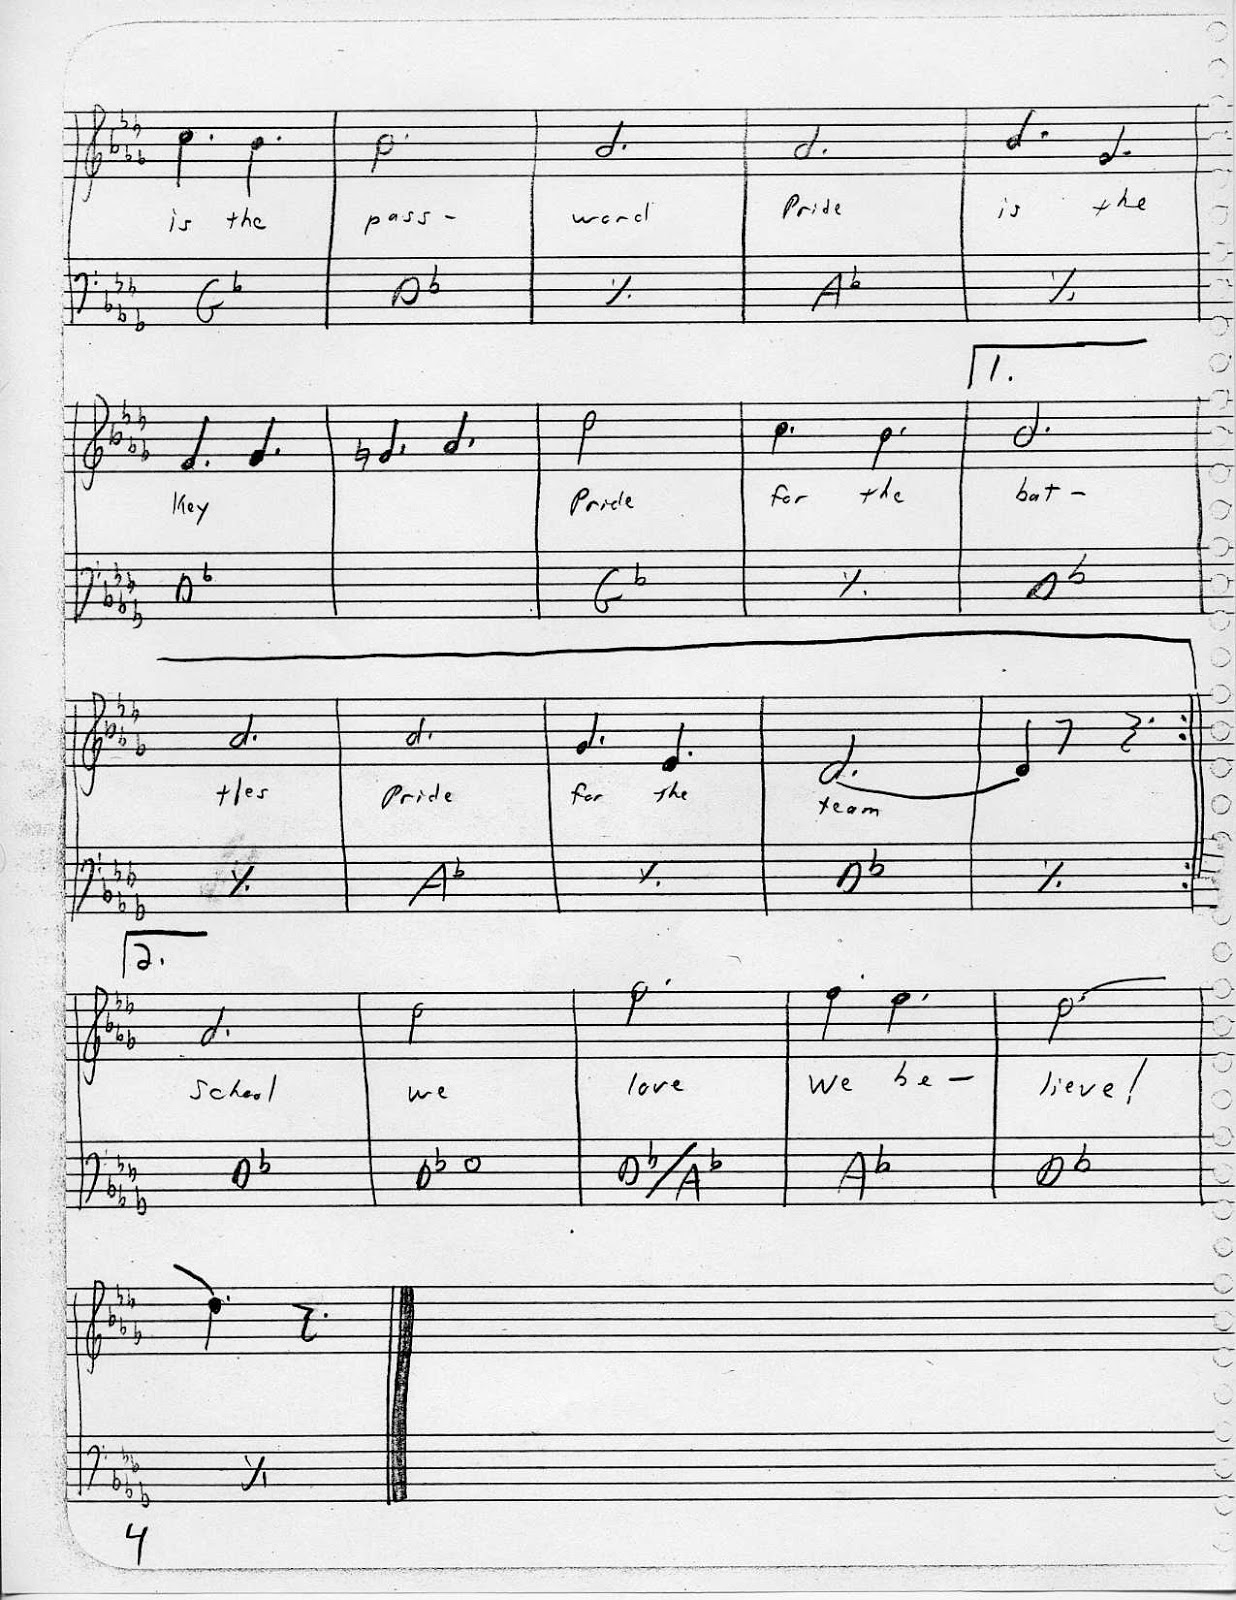 is the pass- word Pride is the
G♭ D♭ ٪ A♭ ٪
1.
Key Pride for the bat-
D♭ G♭ ٪ D♭
tles Pride for the team
٪ A♭ ٪ D♭ ٪
2.
School we love we be- lieve!
D♭ D♭o D♭/A♭ A♭ D♭
٪
4